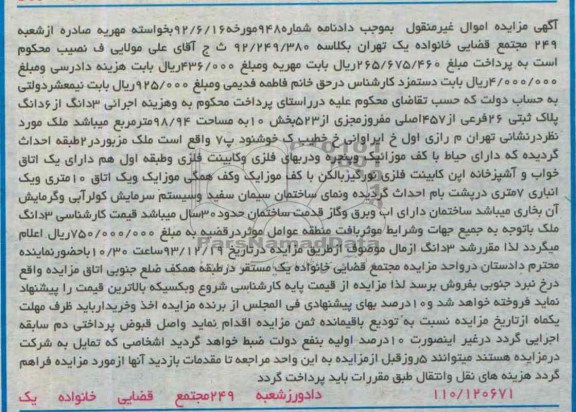 آگهی مزایده اموال غیرمنقول بموجب دادنامه شماره۹۴۸مورخه۹۲/۶/۱۶بخواسته مهریه صادره ازشعبه
۲۴۹ مجتمع قضایی خانواده یک تهران بکلاسه ۹۲/۲۴۹/۳۸۰ ث ج آقای علی مولایی ف نصیب محکوم
است به پرداخت مبلغ ۲۶۵/۶۷۵/۴۶۰ریال بابت مهریه ومبلغ ۴۳۶/۰۰۰ریال بابت هزینه دادرسی ومبلغ
۴/۰۰۰/۰۰۰ریال بابت دستمزد کارشناس درحق خانم فاطمه قدیمی ومبلغ ۹۲۵/۰۰۰ریال بابت نیمعشردولتی
به حساب دولت که حسب تقاضای محکوم علیه درراستای پرداخت محکوم به وهزینه اجرائی ۳دانگ از۶دانگ
پلاک ثبتی ۲۶فرعی از۴۵۷اصلی مفروزمجزی از۵۲۳بخش ۱۰به مساحت ۹۸/۹۴مترمربع میباشد ملک مورد
نظردرنشانی تهران م رازی اول خ ابراوانی خ خطیب ک خوشنود پ۷ واقع است ملک مزبوردر۲طبقه احداث
گردیده که دارای حیاط با کف موزائیک وپنجره ودربهای فلزی وکابینت فلزی وطبقه اول هم دارای یک اتاق
خواب و آشپزخانه اپن کابینت فلزی نورگیربالکن با کف موزایک وکف همکی موزایک ویک اتاق ۱۰متری ویک
انباری ۷متری درپشت بام احداث گردیده ونمای ساختمان سیمان سفید وسیستم سرمایش کولرآبی وگرمایش
آن بخاری میباشد ساختمان دارای اب وبرق وگاز قدمت ساختمان حدود ۳۰سال میباشد قیمت کارشناسی ۳دانگ
ملک باتوجه به جمیع جهات وشرایط موثربافت منطقه عوامل موثردرقضیه به مبلغ ۷۵۰/۰۰۰/۰۰۰ریال اعلام
میگردد لذا مقررشد ۳دانگ ازمال موصوف ازطریق مزایده درتاریخ ۹۳/۱۲/۱۹ساعت ۱۰/۳۰باحضورنماینده
محترم دادستان درواحد مزایده مجتمع قضایی خانواده یک مستقر درطبقه همکف ضلع جنوبی اتاق مزایده واقع
درخ نبرد جنوبی بفروش برسد لذا مزایده از قیمت پایه کارشناسی شروع وبکسیکه بالاترین قیمت را پیشنهاد
نماید فروخته خواهد شد و۱۰درصد بهای پیشنهادی فی المجلس از برنده مزایده اخذ وخریدارباید ظرف مهلت
یکماه ازتاریخ مزایده نسبت به تودیع باقیمانده ثمن مزایده اقدام نماید واصل قبوض پرداختی دم سابقه
اجرایی گردد درغیر اینصورت ۱۰درصد اولیه بنفع دولت ضبط خواهد گردید اشخاصی که تمایل به شرکت
درمزایده هستند میتوانند ۵روزقبل ازمزایده به این واحد مراجعه تا مقدمات بازدید آنها ازمورد مزایده فراهم
گردد هزینه های نقل وانتقال طبق مقررات باید پرداخت گردد
۱۱۰/۱۲۰۶۷۱ دادورزشعبه ۲۴۹مجتمع قضایی خانواده یک
ParsNamadData